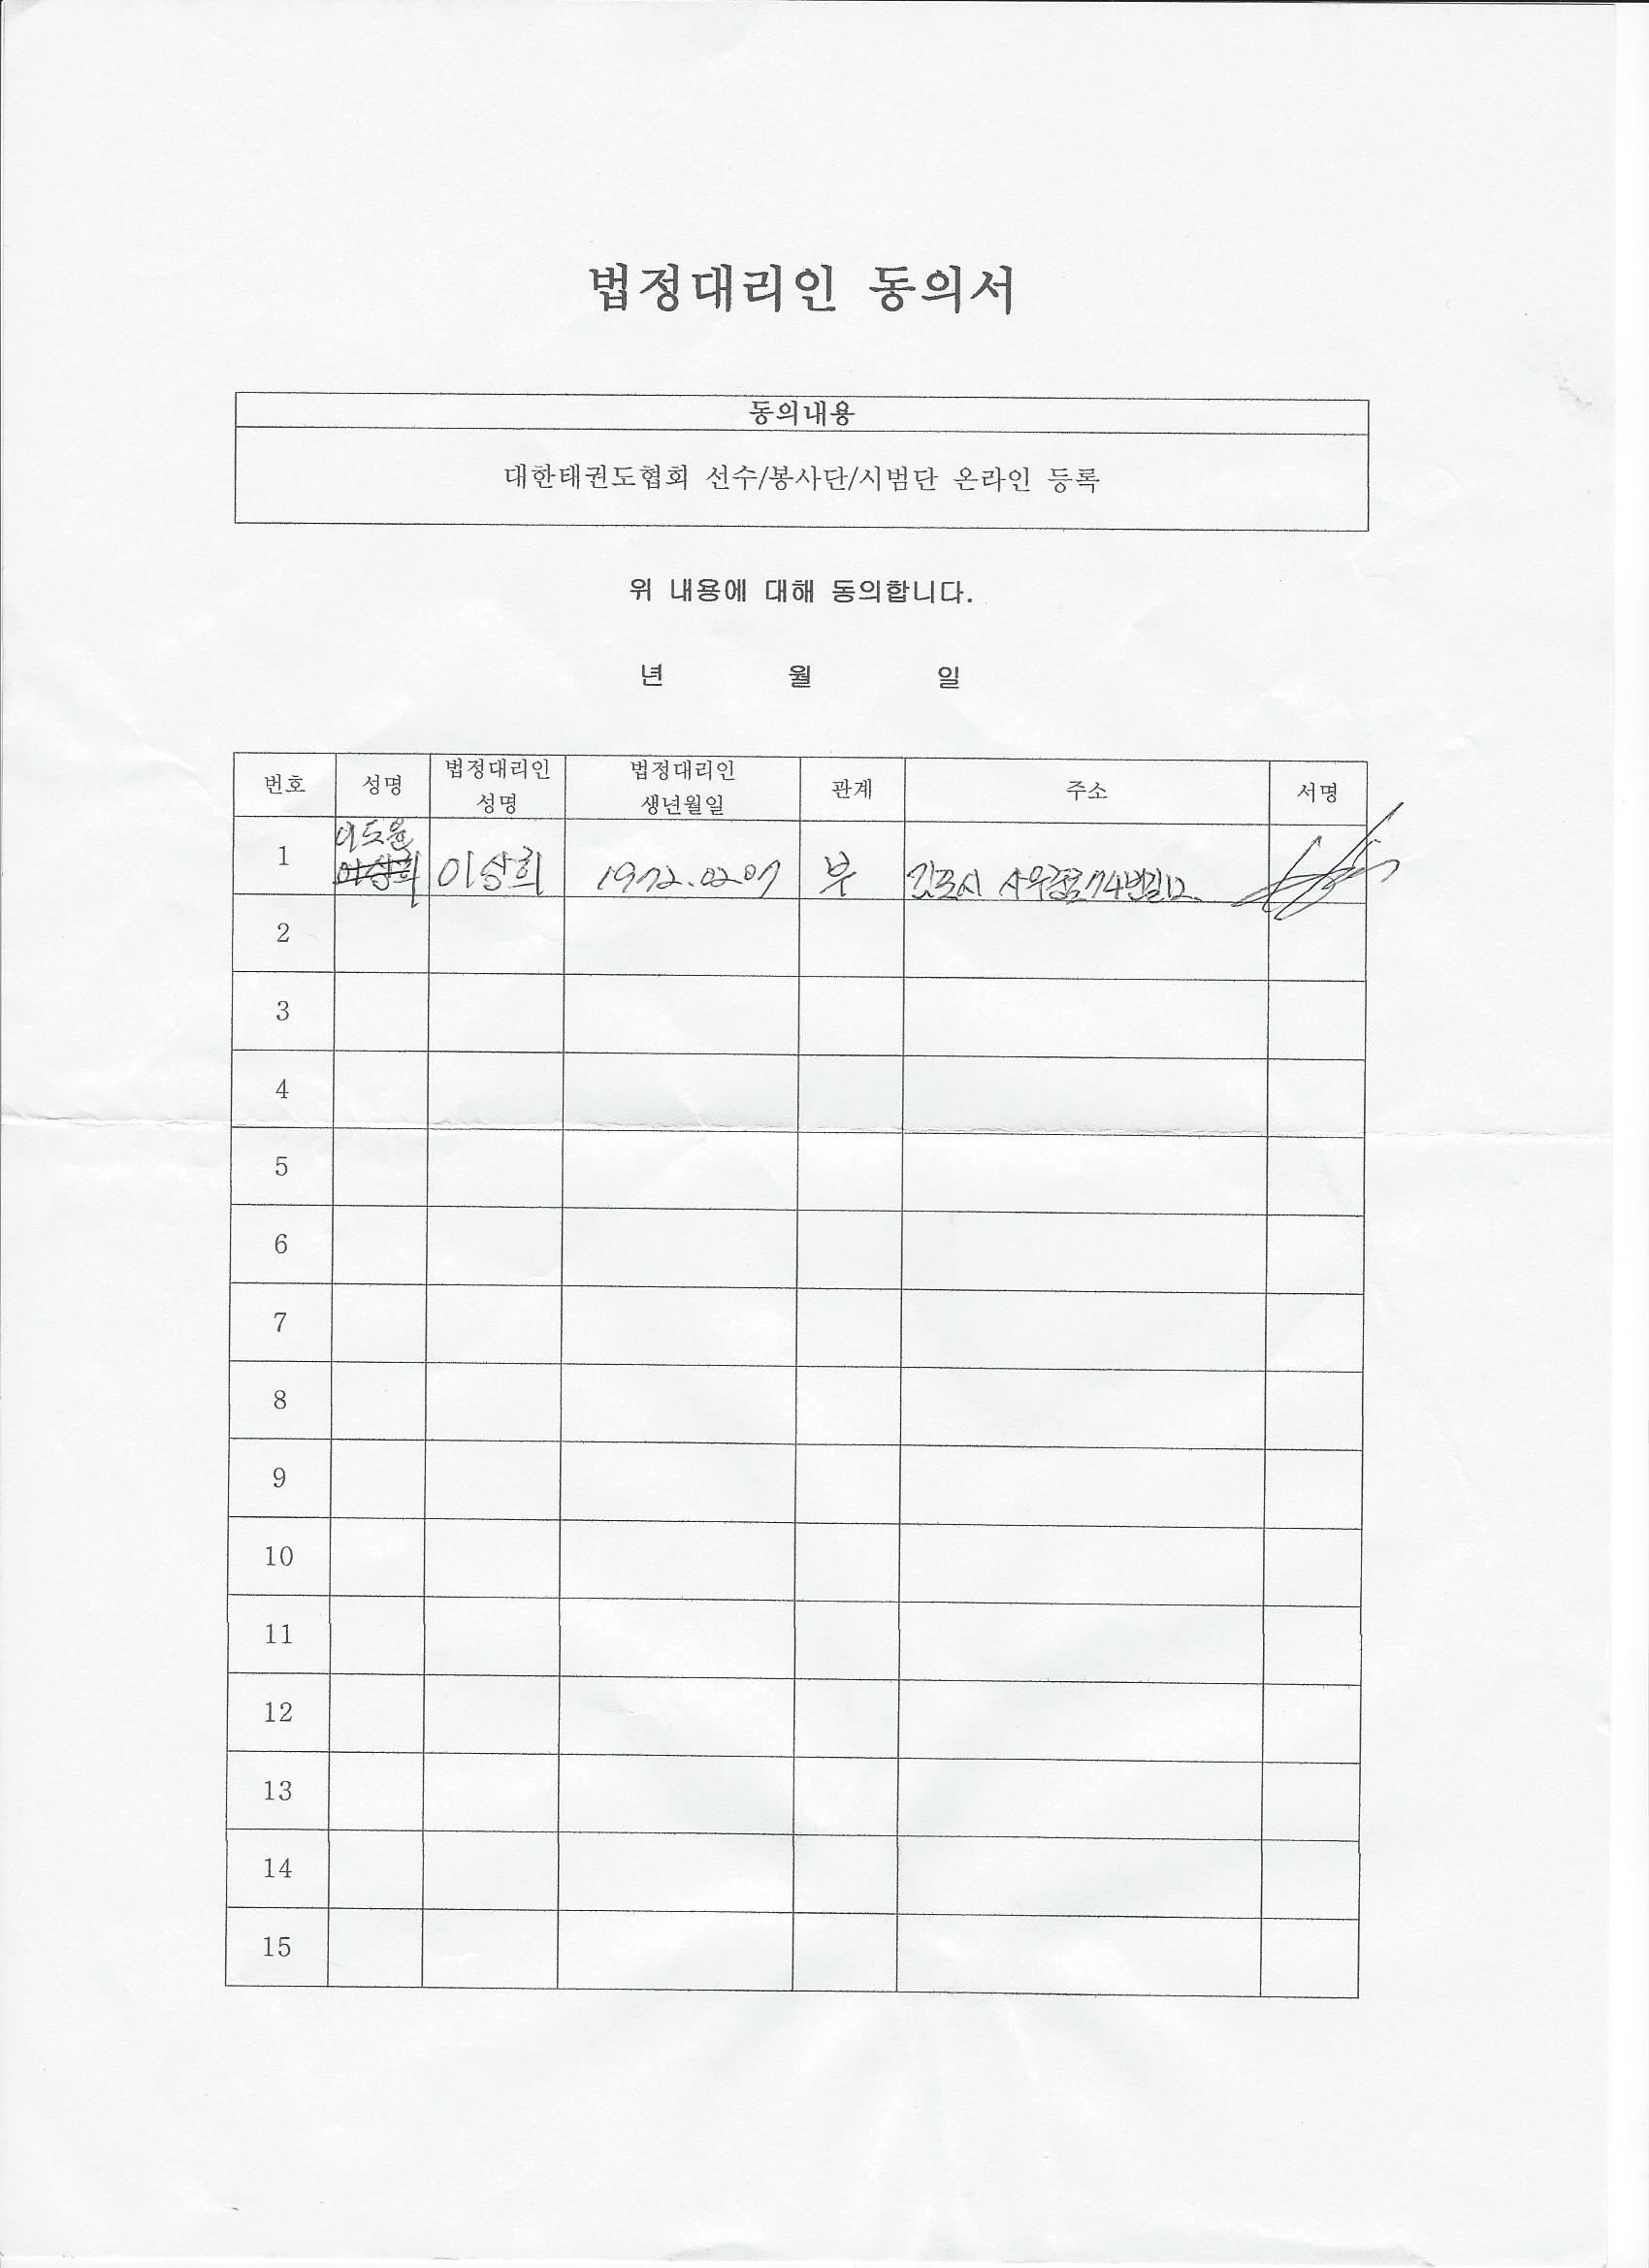 법정대리인 동의서
동의내용
대한태권도협회 선수/봉사단/시범단 온라인 등록
위 내용에 대해 동의합니다.
년 월 일
번호 성명 법정대리인 성명 법정대리인 생년월일 관계 주소 서명
이도윤
1 이상희 이상희 1972.02.07 부 김포시 사우중로74번길12.
2
3
4
5
6
7
8
9
10
11
12
13
14
15